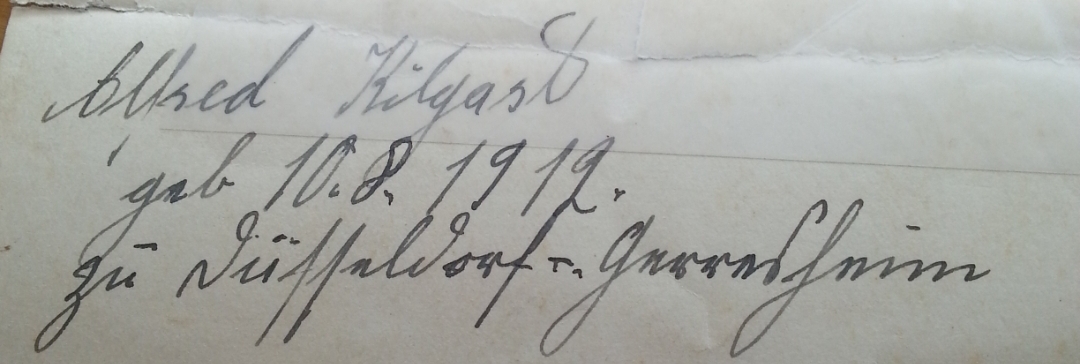 Alfred Kilgast
geb 10.8.1912.
zu Düsseldorf-Gerresheim